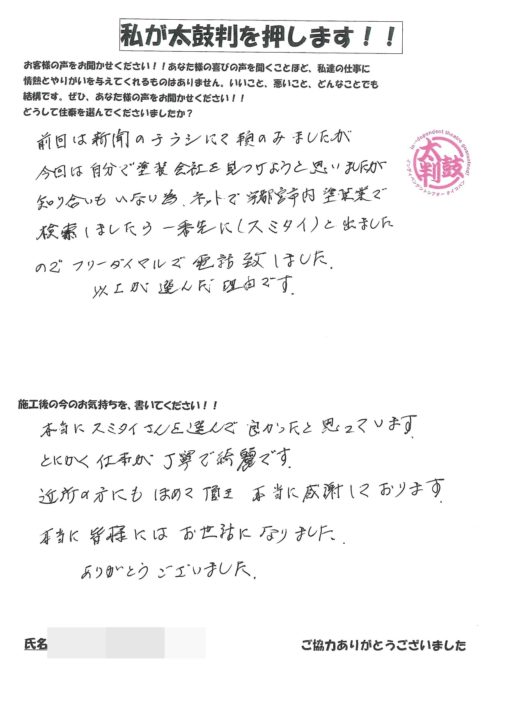 私が太鼓判を押します！！
お客様の声をお聞かせください！！あなた様の喜びの声を聞くことほど、私達の仕事に
情熱とやりがいを与えてくれるものはありません。いいこと、悪いこと、どんなことでも
結構です。ぜひ、あなた様の声をお聞かせください！！
どうして住泰を選んでくださいましたか？
前回は新聞のチラシにて頼のみましたが
今回は自分で塗装会社を見つけようと思いましたが
知り合いもいない為、ネットで宇都宮市内塗装業で
検索しましたら一番先に（スミタイ）と出ました
のでフリーダイヤルで電話致しました。
以上が選んだ理由です。
太鼓判
施工後の今のお気持ちを、書いてください！！
本当にスミタイさんを選んで良かったと思っています。
とにかく仕事が丁寧で綺麗です。
近所の方にもほめて頂き本当に感謝しております。
本当に皆様にはお世話になりました。
ありがとうございました。
氏名
ご協力ありがとうございました